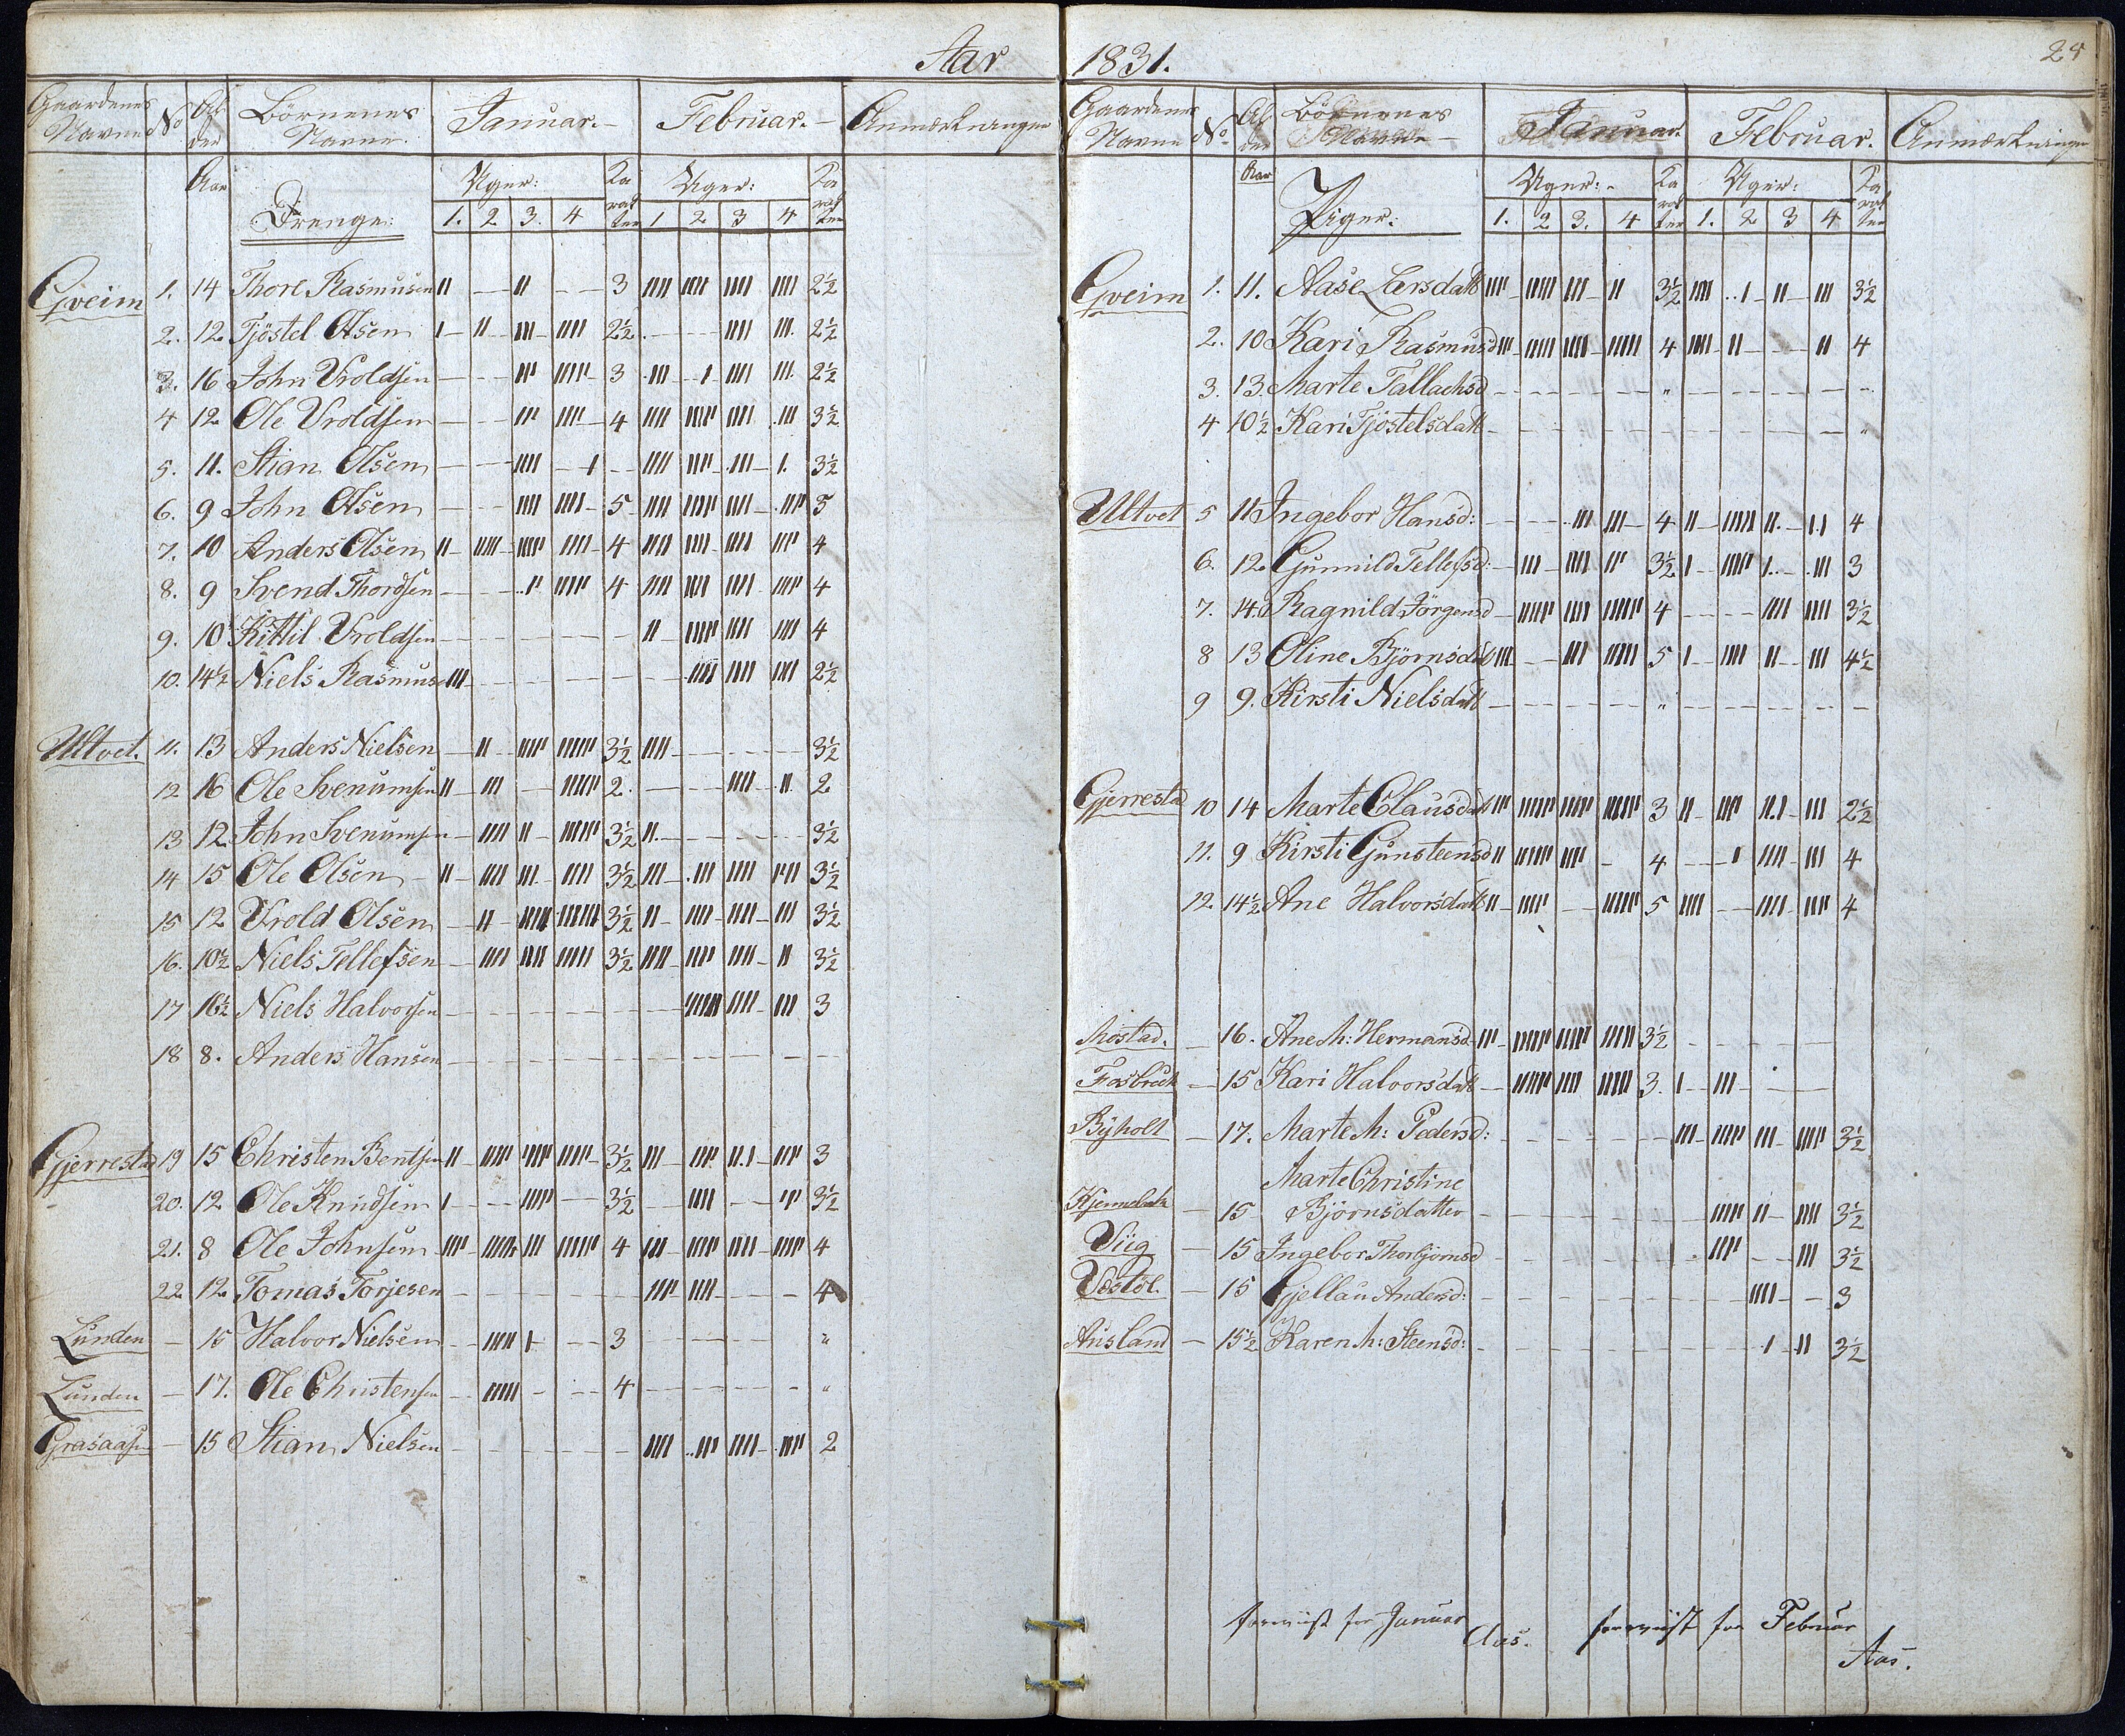 Aar
Gaardenes Navne No Al der Börnenes Navne Januar. Februar. Anmærkninger
Aar Drenge: Uger: Ka rak ter Uger: Ka rak ter
1. 2 3. 4 1 2 3 4
Gveim 1. 14 Thore Rasmusen II — II — — 3 IIII IIII IIII IIII 2½
2. 12 Tjöstel Olsen I II III IIII 2½ — — IIII III 2½
3. 16 John Uroldsen — — III IIII 3 III I IIII III 2½
4 12 Ole Uroldsen — — III IIII 4 IIII IIII IIII III 3½
5. 11. Stian Olsen — — IIII I — IIII IIII III I 3½
6. 9 John Olsen — — IIII IIII 5 IIII IIII IIII III 5
7. 10 Anders Olsen II IIII IIII IIII 4 IIII IIII IIII III 4
8. 9 Svend Thordsen — — I IIII 4 IIII IIII IIII III 4
9. 10 Kittil Uroldsen — — — — — II IIII IIII IIII 4
10. 14½ Niels Rasmus III — — — — — IIII IIII IIII 2½
Ultvet. 11. 13 Anders Nielsen — II IIII IIIII 3½ IIII — — — 3½
12 16 Ole Svenumsen II III — IIIII 2. — — IIII II 2
13 12 John Svenumsen — IIII II IIIII 3½ II — — — 3½
14 15 Ole Olsen II IIII III IIII 3½ III III IIII III 3½
15 12 Urold Olsen — II IIIII IIIIII 3½ II IIII IIII III 3½
16. 10½ Niels Tellefsen — IIII IIII IIIII 3½ IIII IIII IIII II 3½
17 16½ Niels Halvorsen — — — — — — IIIII IIII III 3
18 8. Anders Hansen — — — — — — — — — —
Gjerrestad 19 15 Christen Bentsen II IIII IIII IIII 3½ III III III III 3
20. 12 Ole Knudsen I — IIII — 3½ — IIII — II 3½
21. 8 Ole Johnsen IIII IIIII III IIIII 4 III IIII IIII IIII 4
22 12 Tomas Torjesen — — — — — IIII IIII — — 4
Lunden — 15 Halvor Nielsen — IIII I — 3 — — — — "
Lunden — 17. Ole Christensen — IIIII — — 4 — — — — "
Grasaasen — 15 Stian Nielsen — — — — — IIII III IIII III 2
1831. 25
Gaardenes Navne No. Al der Börnenes Navne Januar. Februar. Anmærkninger
Aar Piger: Uger: Ka rak ter Uger: Ka rak ter
1. 2 3. 4 1. 2 3 4
Gveim 1. 11. Aase Larsdatt IIII IIIII IIII II 3½ IIII I II III 3½
2. 10 Kari Rasmusd III IIIII IIII IIIII 4 IIII II — II 4
3. 13. Marte Tallachsd — — — — " — — — — —
4 10½ Kari Tjöstelsdatt — — — — — — — — — "
Ultvet 5 11 Ingebor Hansd: — — III III 4 II IIII II II 4
6. 12. Gunnild Tellefsd: — III IIII III 3½ I IIII I III 3
7. 14. Ragnild Jörgensd — IIII IIII IIIII 4 — — IIII IIII 3½
8 13 Oline Björnsdatt III — III IIIII 5 I IIII II III 4½
9 9. Kirsti Nielsdatt — — — — " — — — — —
Gjerrestad 10 14 Marte Clausdatt III IIIII IIII IIIII 3 II III III III 2½
11. 9 Kirsti Gunsteensd II IIIII IIII — 4 — I IIII III 4
12 14½ Ane Halvorsdatt II IIII — IIIII 5 IIII — IIII III 4
Mostad. — 16. Ane M: Hermansd III IIIII IIIII IIIII 3½ — — — —
Fosbræk — 15 Kari Halvorsdatt — IIIII IIII IIIII 3. I III — —
Byholt — 17. Marte M: Pedersd: — — — — — III IIII III IIII 3½
Marte Christine
— 15 Björnsdatter — — — — — — IIII II IIII 3½
Viig — 15 Ingebor Thorbjornsd — — — — — — IIII — III 3½
Vestöl. — 15 Gjellau Andersd: — — — — — — — IIII — 3
Ausland — 15½ Karen M: Steensd: — — — — — — — I II 3½
foreviist for Januar forevist for Februar
Aas. Aas.